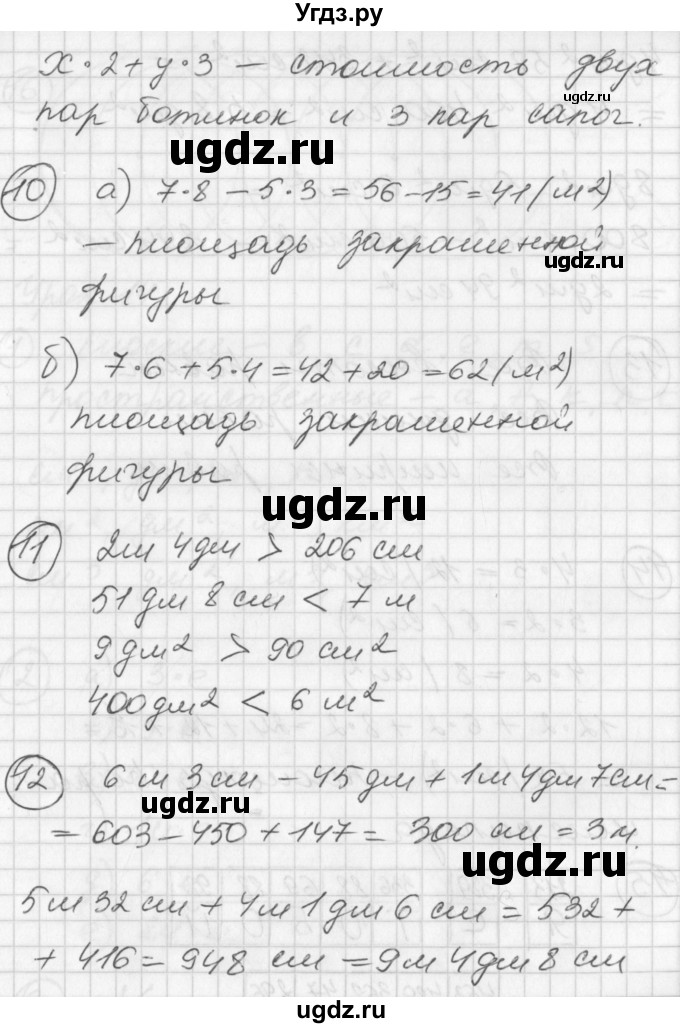 Угдз.ру
x·2+y·3 — стоимость двух
ugdz.ru
пар ботинок и 3 пар сапог.
ugdz.ru
ugdz.ru
10 а) 7·8 – 5·3 = 56 – 15 = 41 (м²)
— площадь закрашенной
ugdz.ru
фигуры
б) 7·6 + 5·4 = 42 + 20 = 62 (м²)
площадь закрашенной
фигуры
ugdz.ru
11 2м 4дм > 206 см
51 дм 8 см < 7 м
9 дм² > 90 см²
400 дм² < 6 м²
12 6 м 3 см – 45 дм + 1м 4дм 7см =
ugdz.ru
= 603 – 450 + 147 = 300 см = 3 м.
ugdz.ru
5 м 32 см + 4 м 1 дм 6 см = 532 +
+ 416 = 948 см = 9 м 4 дм 8 см
ugdz.ru